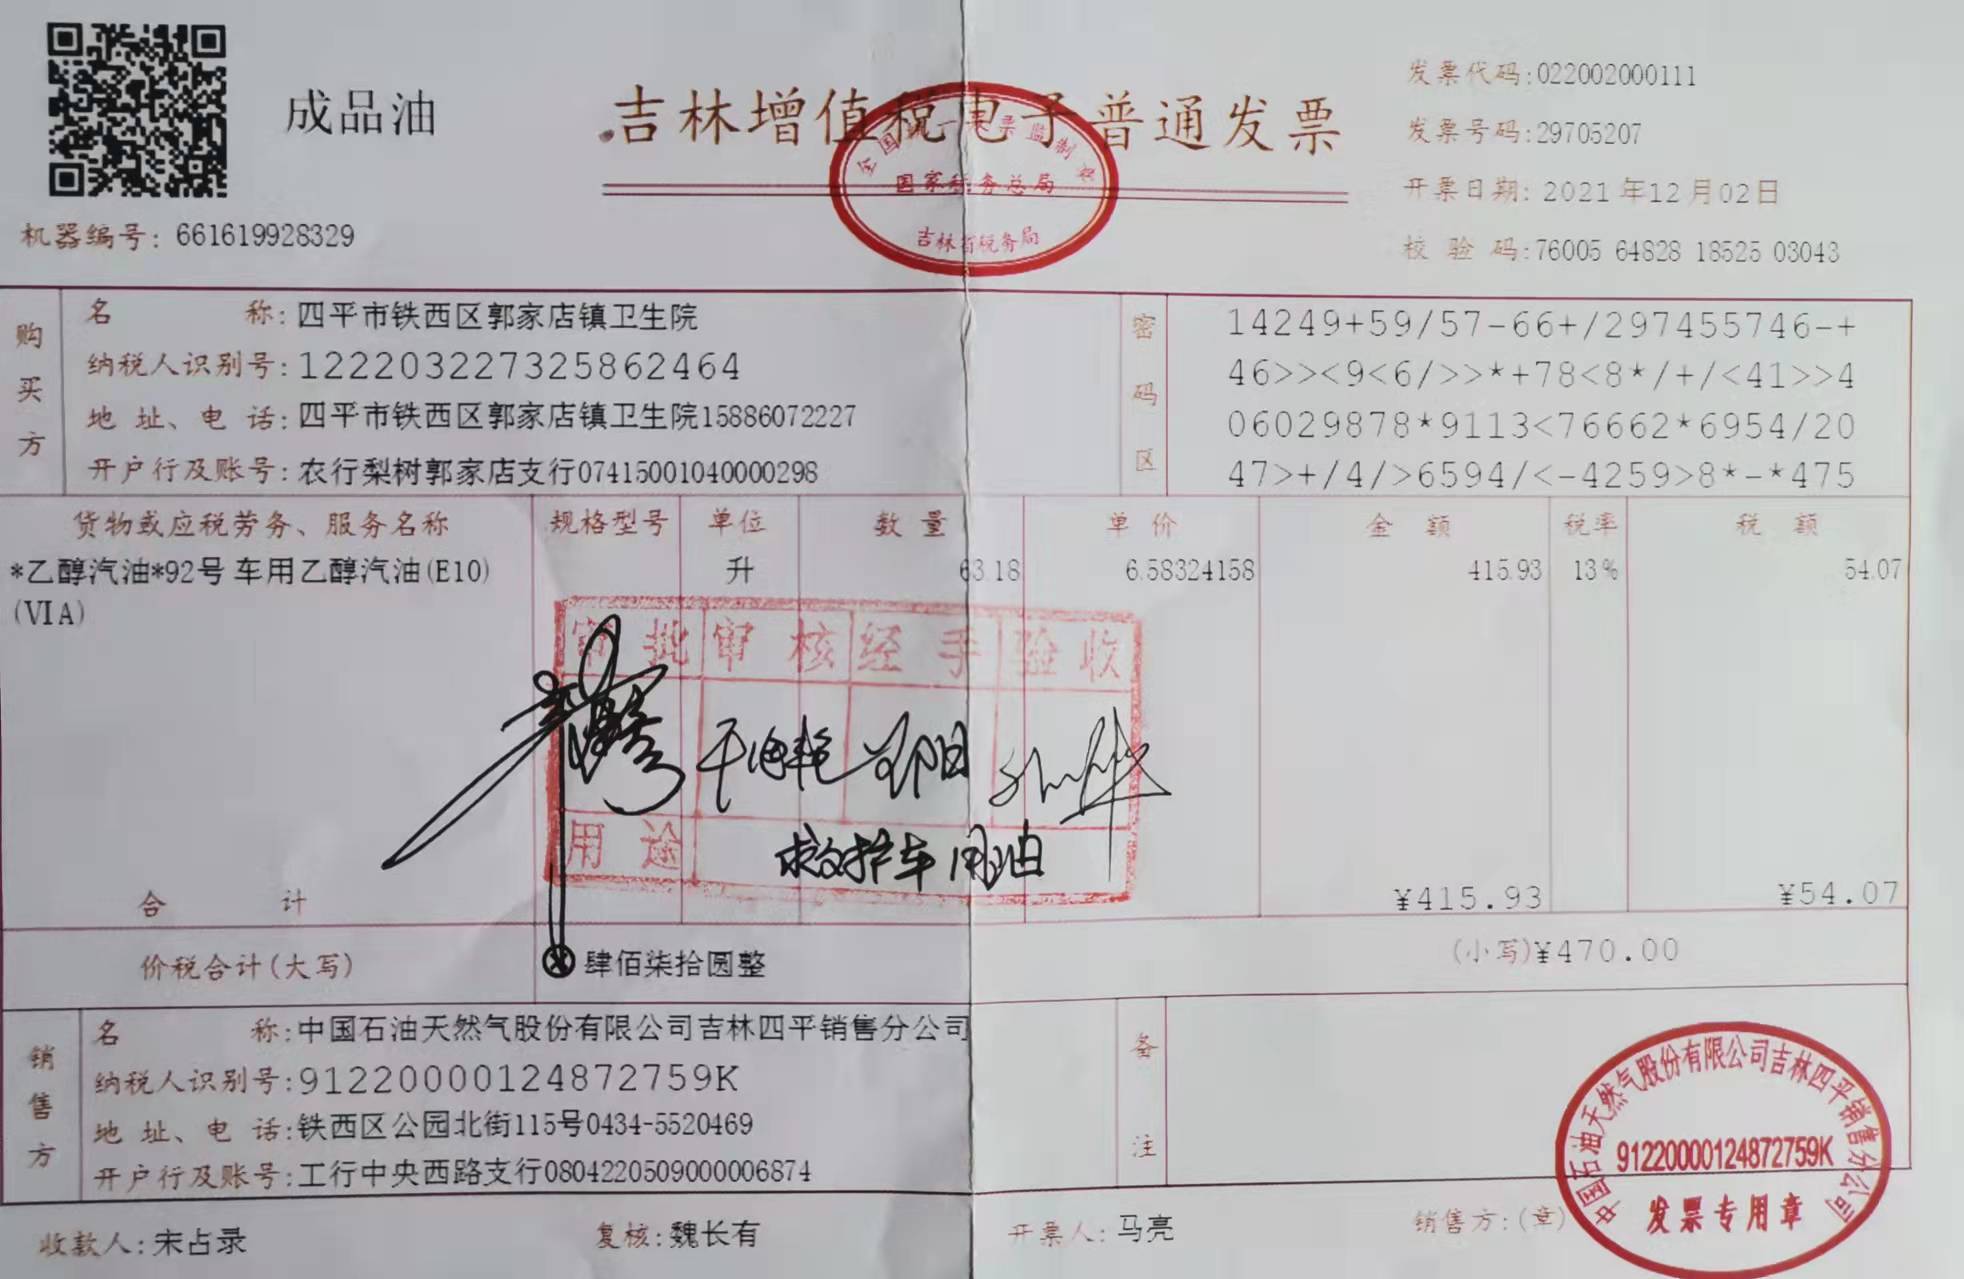 成品油
吉林增值税电子普通发票
全国统一发票监制章
国家税务总局
吉林省税务局
发票代码:022002000111
发票号码:29705207
开票日期: 2021年12月02日
校验码:76005 64828 18525 03043
机器编号: 661619928329
购买方
名称: 四平市铁西区郭家店镇卫生院
纳税人识别号: 122203227325862464
地址、电话: 四平市铁西区郭家店镇卫生院15886072227
开户行及账号: 农行梨树郭家店支行07415001040000298
密码区
14249+59/57-66+/297455746-+
46>><9<6/>>*+78<8*/+/<41>>4
06029878*9113<76662*6954/20
47>+/4/>6594/<-4259>8*-*475
货物或应税劳务、服务名称 规格型号 单位 数量 单价 金额 税率 税额
*乙醇汽油*92号 车用乙醇汽油(E10) 升 63.18 6.58324158 415.93 13% 54.07
(VIA)
审批 审核 经手 验收
用途 救护车用油
合计 ¥415.93 ¥54.07
价税合计(大写) ⊗肆佰柒拾圆整 (小写)¥470.00
销售方
名称:中国石油天然气股份有限公司吉林四平销售分公司
纳税人识别号:91220000124872759K
地址、电话:铁西区公园北街115号0434-5520469
开户行及账号:工行中央西路支行0804220509000006874
备注
中国石油天然气股份有限公司吉林四平销售分公司
91220000124872759K
发票专用章
收款人: 宋占录 复核: 魏长有 开票人: 马亮 销售方:(章)